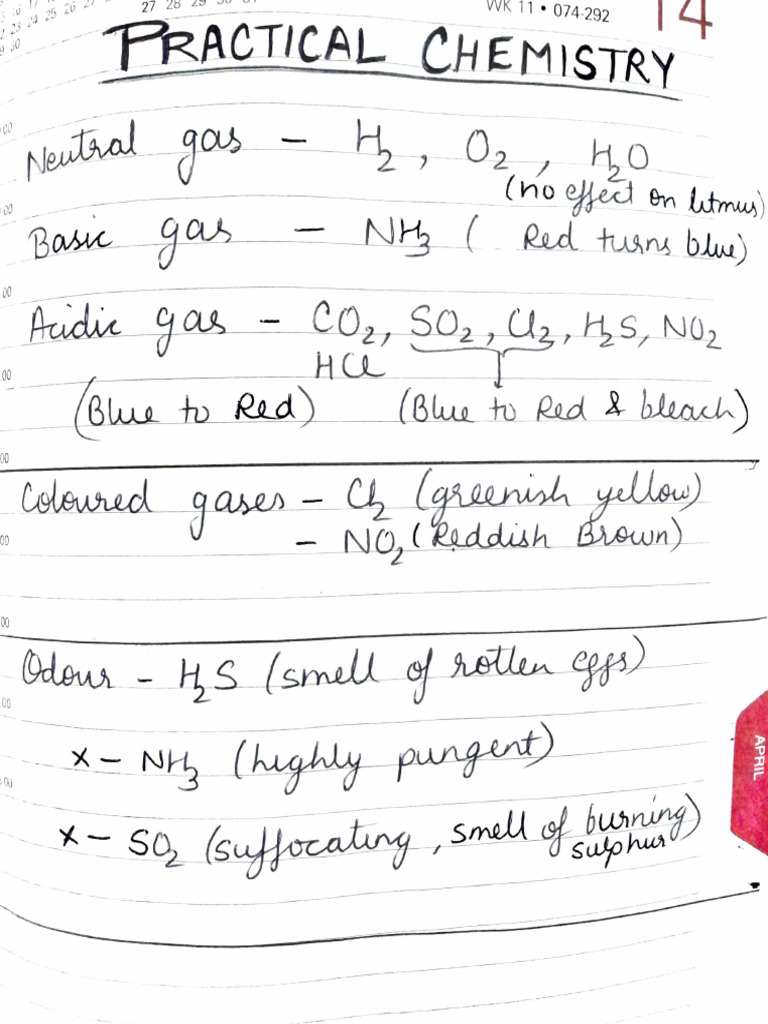 27 28 29 30 31
WK 11 • 074-292
14
23 24 25 26
30
PRACTICAL CHEMISTRY
Neutral gas - H2, O2, H2O
(no effect on litmus)
Basic gas - NH3 ( Red turns blue)
Acidic gas - CO2, SO2, Cl2, H2S, NO2
HCl
(Blue to Red) (Blue to Red & bleach)
Coloured gases - Cl2 (greenish yellow)
- NO2 (Reddish Brown)
Odour - H2S (smell of rotten eggs)
x - NH3 (highly pungent)
x - SO2 (suffocating, smell of burning)
sulphur
APRIL